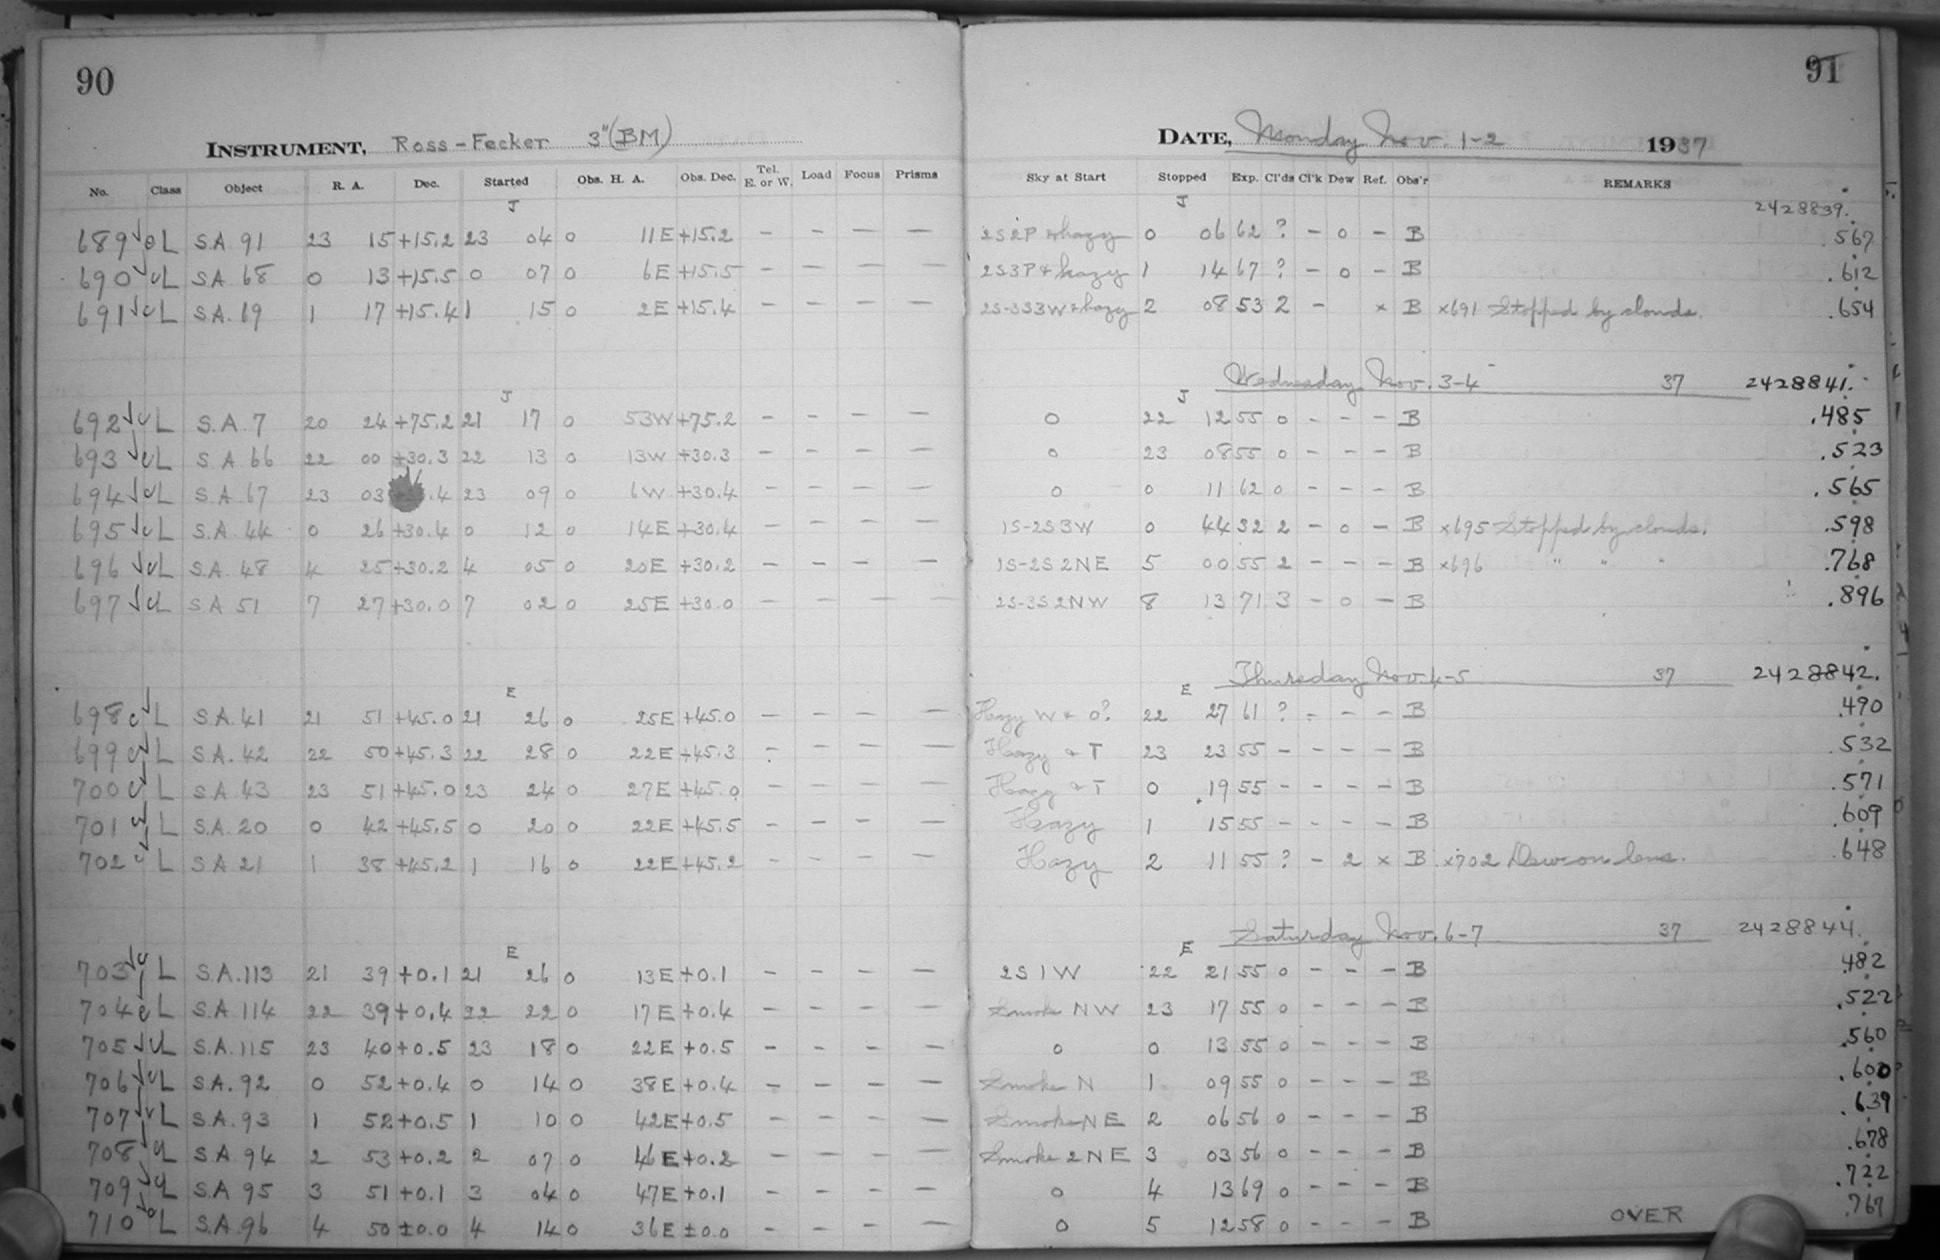 90
INSTRUMENT, Ross-Fecker 3"(BM)
No. Class Object R. A. Dec. Started Obs. H. A. Obs. Dec. Tel. E. or W. Load Focus Prisms
J
689 L S.A 91 23 15 +15.2 23 04 0 11E +15.2 - - - -
690 L S.A 68 0 13 +15.5 0 07 0 6E +15.5 - - - -
691 L S.A. 19 1 17 +15.4 1 15 0 2E +15.4 - - - -
J
692 L S.A. 7 20 24 +75.2 21 17 0 53W +75.2 - - - -
693 L S A 66 22 00 +30.3 22 13 0 13W +30.3 - - - -
694 L S.A. 67 23 03 .4 23 09 0 6W +30.4 - - - -
695 L S.A. 44 0 26 +30.4 0 12 0 14E +30.4 - - - -
696 L S.A. 48 4 25 +30.2 4 05 0 20E +30.2 - - - -
697 L S A 51 7 27 +30.0 7 02 0 25E +30.0 - - - -
E
698 L S.A. 41 21 51 +45.0 21 26 0 25E +45.0 - - - -
699 L S.A. 42 22 50 +45.3 22 28 0 22E +45.3 - - - -
700 L S A 43 23 51 +45.0 23 24 0 27E +45.0 - - - -
701 L S.A. 20 0 42 +45.5 0 20 0 22E +45.5 - - - -
702 L S A 21 1 38 +45.2 1 16 0 22E +45.2 - - - -
E
703 L S.A. 113 21 39 +0.1 21 26 0 13E +0.1 - - - -
704 L S.A 114 22 39 +0.4 22 22 0 17E +0.4 - - - -
705 L S.A. 115 23 40 +0.5 23 18 0 22E +0.5 - - - -
706 L S.A. 92 0 52 +0.4 0 14 0 38E +0.4 - - - -
707 L S.A. 93 1 52 +0.5 1 10 0 42E +0.5 - - - -
708 L S A. 94 2 53 +0.2 2 07 0 46E +0.2 - - - -
709 L S.A 95 3 51 +0.1 3 04 0 47E +0.1 - - - -
710 L S.A. 96 4 50 ±0.0 4 14 0 36E ±0.0 - - - -
91
DATE, Monday Nov. 1-2 1937
Sky at Start Stopped Exp. Cl'ds Cl'k Dew Ref. Obs'r REMARKS
J 2428839.
2S2P & hazy 0 06 62 ? - 0 - B .567
2S3P & hazy 1 14 67 ? - 0 - B .612
2S-3S3W & hazy 2 08 53 2 - x B x691 Stopped by clouds. .654
Wednesday Nov. 3-4 37 2428841.
J
0 22 12 55 0 - - - B .485
0 23 08 55 0 - - - B .523
0 0 11 62 0 - - - B .565
1S-2S3W 0 44 32 2 - 0 - B x695 Stopped by clouds. .598
1S-2S2NE 5 00 55 2 - - - B x696 " " " .768
2S-3S2NW 8 13 71 3 - 0 - B .896
Thursday Nov. 4-5 37 2428842.
E
Hazy W & 0? 22 27 61 ? - - - B .490
Hazy & T 23 23 55 - - - - B .532
Hazy & T 0 19 55 - - - - B .571
Hazy 1 15 55 - - - - B .609
Hazy 2 11 55 ? - 2 x B x702 Dew on lens. .648
Saturday Nov. 6-7 37 2428844.
E
2S1W 22 21 55 0 - - - B .482
Smoke NW 23 17 55 0 - - - B .522
0 0 13 55 0 - - - B .560
Smoke N 1 09 55 0 - - - B .600
Smoke NE 2 06 56 0 - - - B .639
Smoke 2NE 3 03 56 0 - - - B .678
0 4 13 69 0 - - - B .722
0 5 12 58 0 - - - B OVER .767